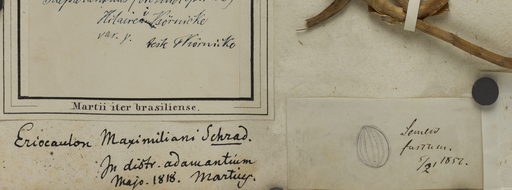 Hilairei Körnicke
var. γ.
teste Körnicke
Martii iter brasiliense.
Eriocaulon Maximiliani Schrad.
In distr. adamantium
Majo. 1818. Martius.
Semen
5/2 1856.